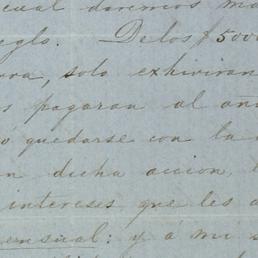 cual daremos ma
eglo. De los $5000
ra, solo exhiviran
s pagaran al añ
o quedarse con la
n dicha accion, l
intereses que les a
ensual: y á mi s